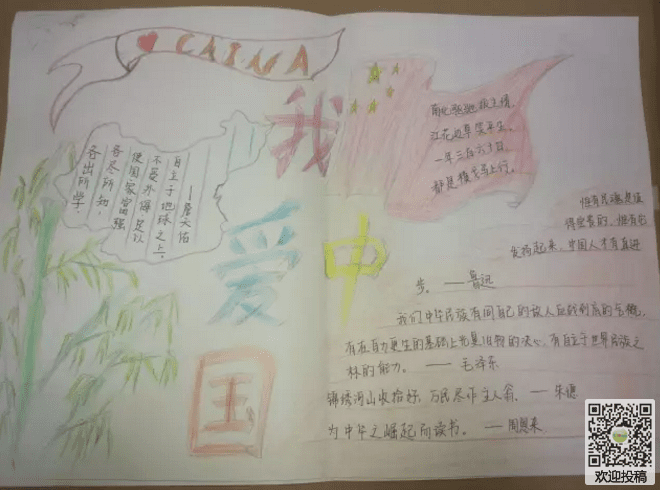 CAINA
我
爱
中
国
各出所学,
各尽所知,
使国家富强
不受外侮足以
自立于地球之上。
——詹天佑
南北驱驰报主情,
江花边草笑平生。
一年三百六十日,
都是横戈马上行。
惟有民魂是值
得宝贵的,惟有它
发扬起来,中国人才有真进
步。——鲁迅
我们中华民族有同自己的敌人血战到底的气概,
有在自力更生的基础上光复旧物的决心,有自立于世界民族之
林的能力。——毛泽东
锦绣河山收拾好,万民尽作主人翁。——朱德
为中华之崛起而读书。——周恩来
欢迎投稿